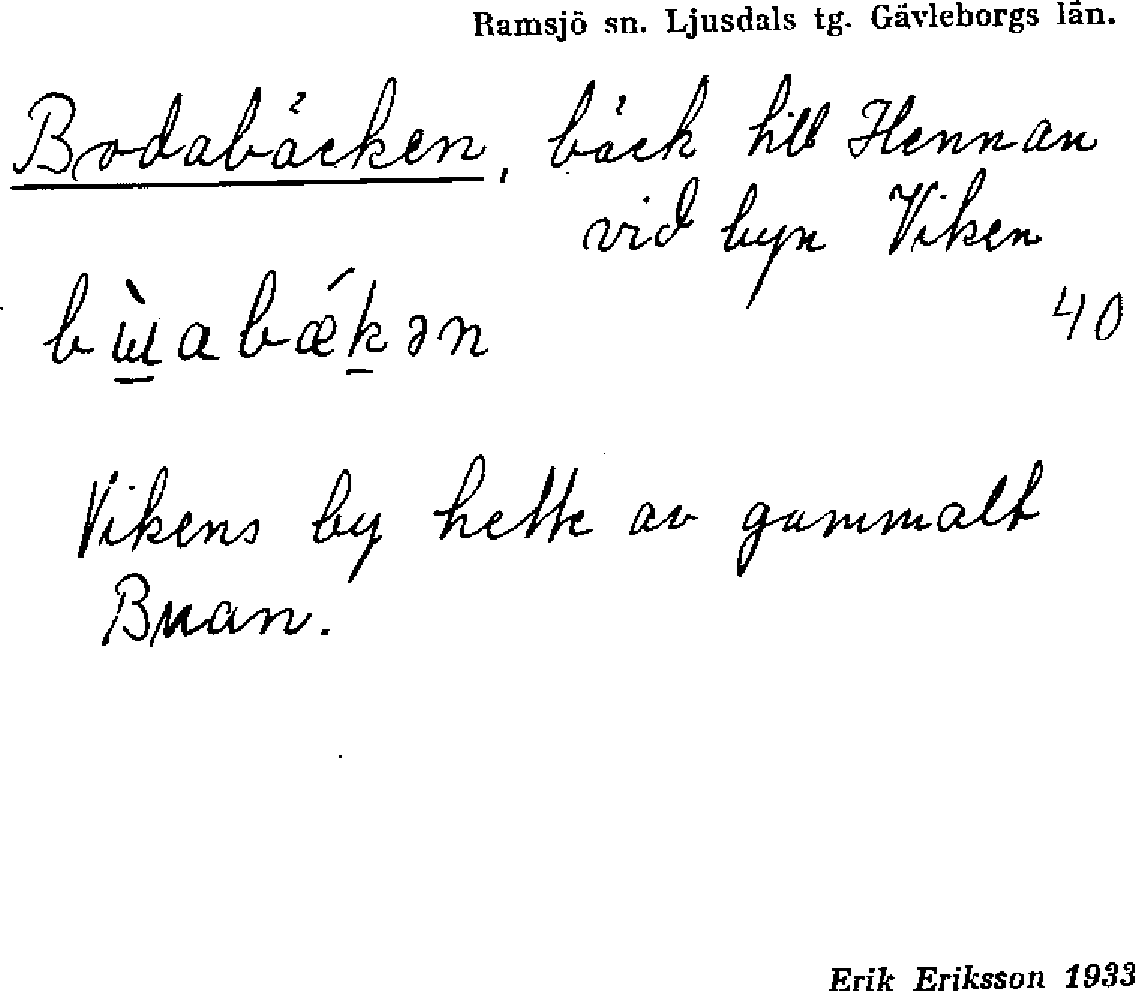 Ramsjö sn. Ljusdals tg. Gävleborgs län.
Bodabäcken, bäck till Hennan
vid byn Viken
bɯ̀abǽkən 40
Vikens by hette av gammalt
Buan.
Erik Eriksson 1933